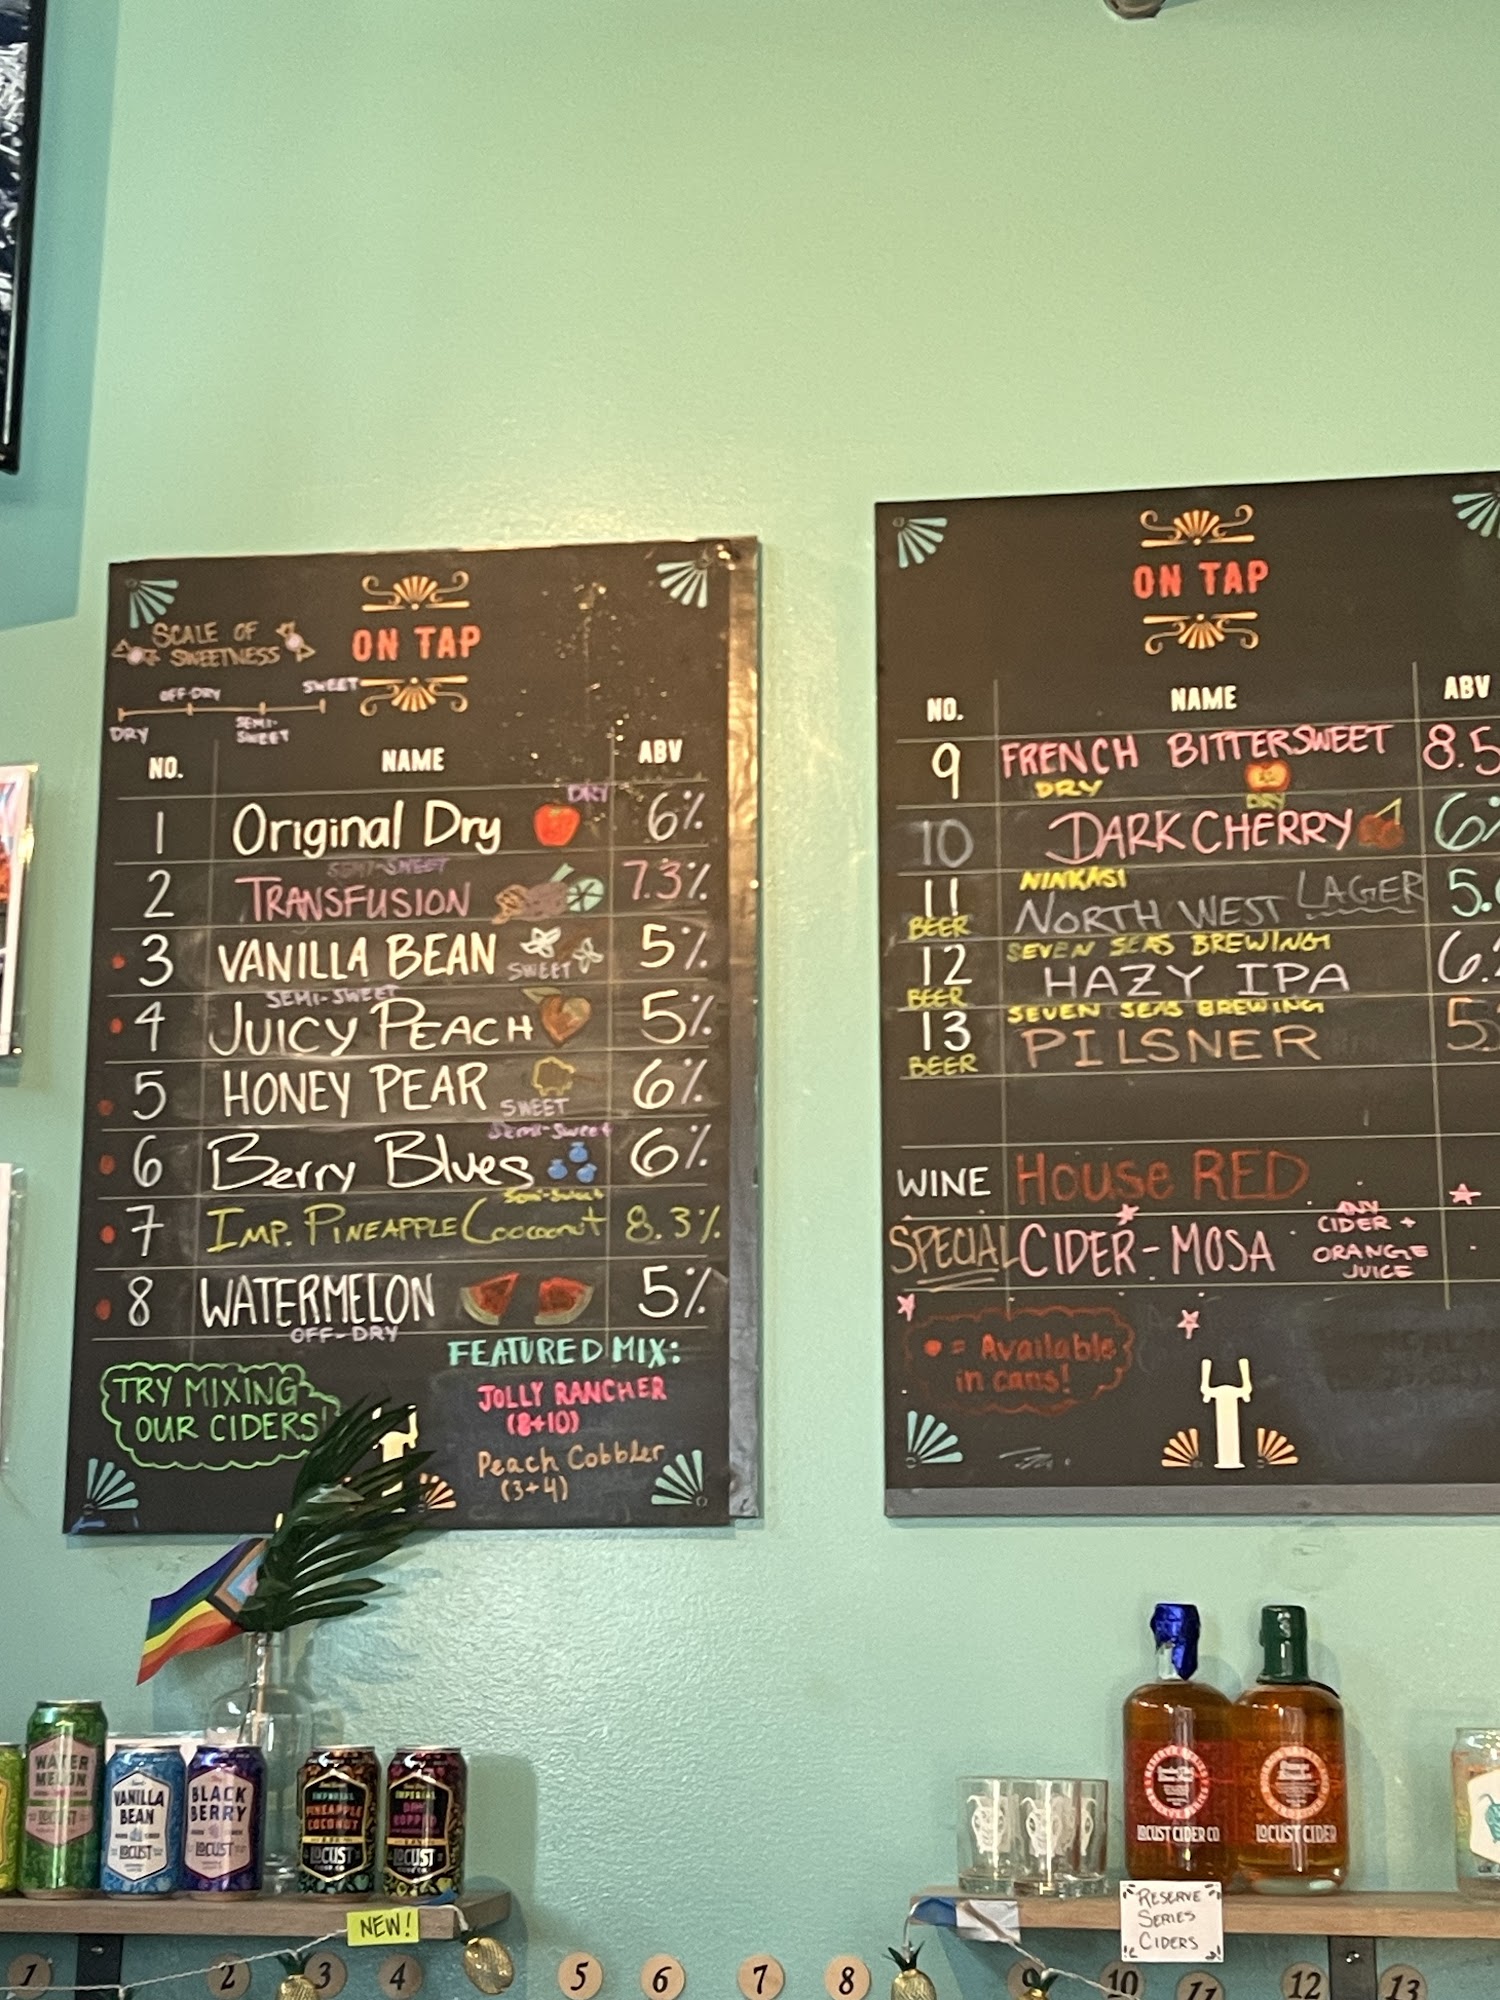 SCALE OF
SWEETNESS
ON TAP
OFF-DRY
SWEET
DRY
SEMI-
SWEET
NO. NAME ABV
DRY
1 Original Dry 6%
SEMI-SWEET
2 TRANSFUSION 7.3%
3 VANILLA BEAN 5%
SWEET
SEMI-SWEET
4 JUICY PEACH 5%
5 HONEY PEAR 6%
SWEET
SEMI-SWEET
6 Berry Blues 6%
SEMI-SWEET
7 IMP. PINEAPPLE Cocoonut 8.3%
8 WATERMELON 5%
OFF-DRY
TRY MIXING
OUR CIDERS!
FEATURED MIX:
JOLLY RANCHER
(8+10)
Peach Cobbler
(3+4)
ON TAP
NO. NAME ABV
9 FRENCH BITTERSWEET 8.5
DRY
DRY
10 DARK CHERRY 6%
NINKASI
11 NORTH WEST LAGER 5.
BEER
SEVEN SEAS BREWING
12 HAZY IPA 6.
BEER
SEVEN SEAS BREWING
13 PILSNER 5
BEER
WINE House RED
SPECIAL CIDER-MOSA
ANY
CIDER +
ORANGE
JUICE
= Available
in cans!
WATER
MELON
LOCUST
VANILLA
BEAN
LOCUST
BLACK
BERRY
LOCUST
IMPERIAL
PINEAPPLE
COCONUT
LOCUST
IMPERIAL
HOPPED
LOCUST
NEW!
LOCUST CIDER CO
LOCUST CIDER
RESERVE
SERIES
CIDERS
1 2 3 4 5 6 7 8 9 10 11 12 13